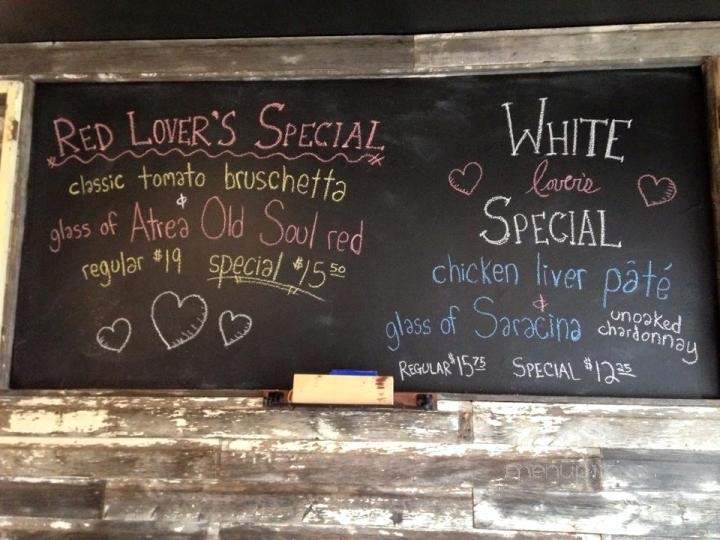 RED LOVER'S SPECIAL
classic tomato bruschetta
&
glass of Atrea Old Soul red
regular $19 special $15 50
WHITE
lover's
SPECIAL
chicken liver pâté
&
glass of Saracina unoaked
chardonnay
REGULAR $15 75 SPECIAL $12 35